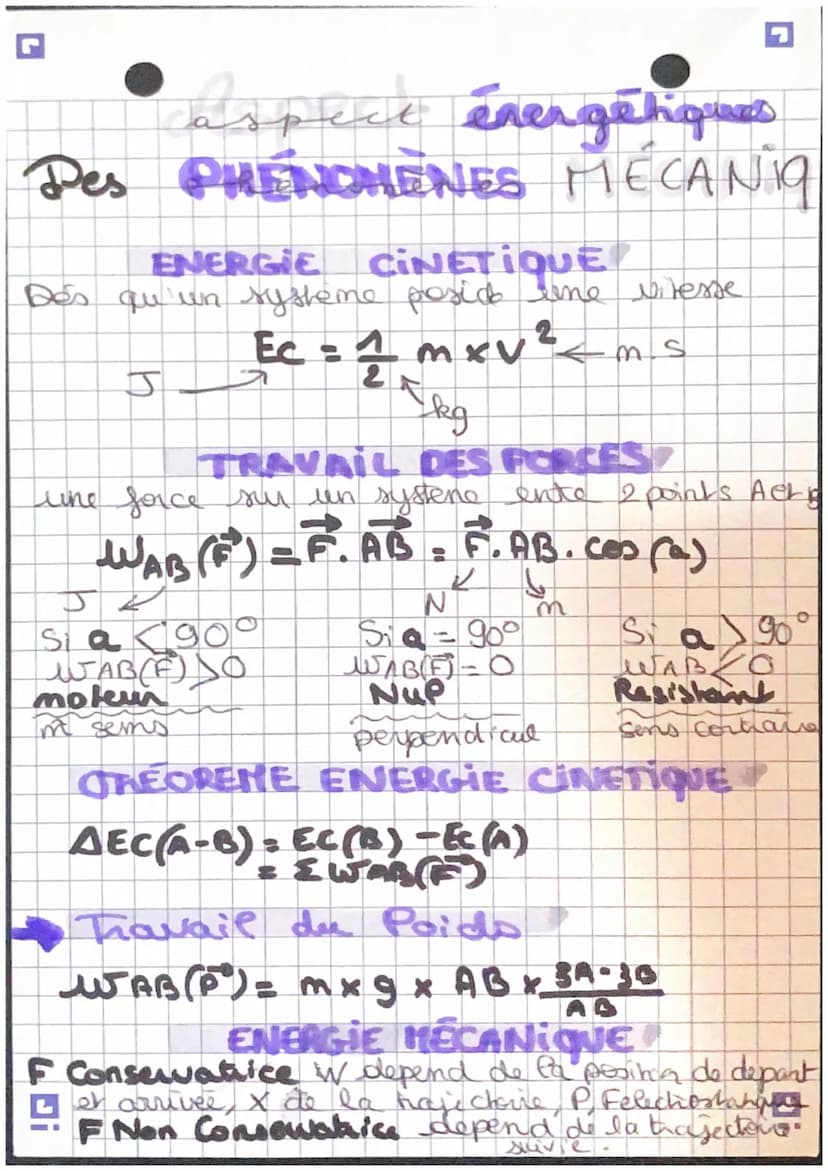 aspect énergétiques
Des PHÉNOMÈNES MÉCANIQ
ENERGIE CINETIQUE
Dés qu'un système possède une vitesse
Ec = 1/2 m x v² ← m.s
J
kg
TRAVAIL DES FORCES
une force sur un système entre 2 points A et B
WAB(F→) = F→. AB→ = F→. AB. cos(a)
J N m
Si a < 90° Si a = 90° Si a > 90°
WAB(F→) > 0 WAB(F→) = 0 WAB < 0
moteur Nul Resistant
m̂ sens perpendicul sens contraire
THÉOREME ENERGIE CINETIQUE
ΔEC(A-B) = EC(B) - Ec(A)
= Σ WAB(F→)
→ Travail du Poids
WAB(P→) = m x g x AB x zA-zB/AB
ENERGIE MÉCANIQUE
F Conservatrice W depend de la position de depart
et arrivée, X de la trajectoire, P, Felectrostatique
F Non Conservatrice depend de la trajectoire
suivie.